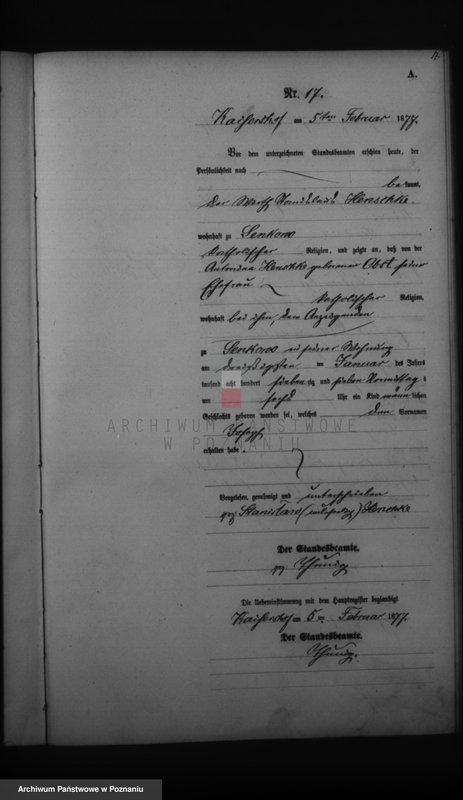 17.
A.
Nr. 17.
Kaisershof am 5ten Februar 1877.
Vor dem unterzeichneten Standesbeamten erschien heute, der
Persönlichkeit nach
bekannt,
der Wirth Stanislaus Henschke
wohnhaft zu Senkowo
katholischer Religion, und zeigte an, daß von der
Antonina Henschke geborenen Obst seiner
Ehefrau
katholischer Religion,
wohnhaft bei ihm, dem Anzeigenden
zu Senkowo in seiner Wohnung
am dreißigsten Januar des Jahrs
tausend acht hundert siebenzig und sieben Vormittags
um sechs Uhr ein Kind männlichen
Geschlechts geboren worden sei, welches den Vornamen
Joseph
erhalten habe.
Vorgelesen, genehmigt und unterschrieben
gez Stanislaus Henschke
Der Standesbeamte.
gez
Die Uebereinstimmung mit dem Hauptregister beglaubigt
Kaisershof am 5ten Februar 1877.
Der Standesbeamte.
ARCHIWUM PAŃSTWOWE
W POZNANIU
Archiwum Państwowe w Poznaniu